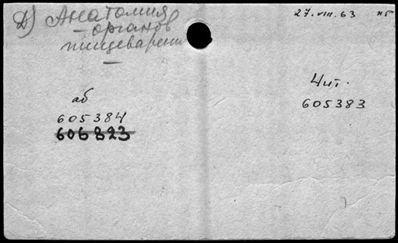 Д) Анатомия
органов
пищеварени
27.VIII.63
аб
605384
606823
Чит.
605383